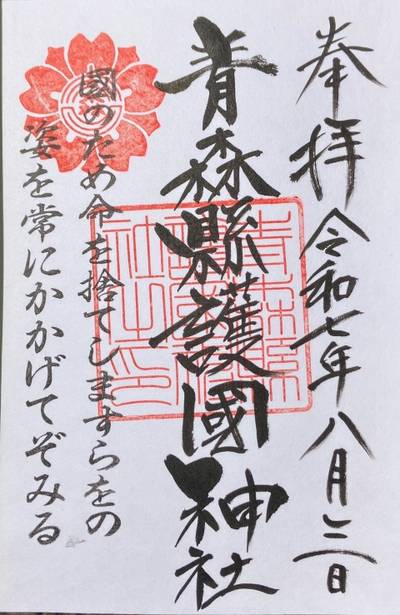 奉拝 令和七年八月三日
青森縣護國神社
國のため命を捨てしますらをの
姿を常にかかげてぞみる